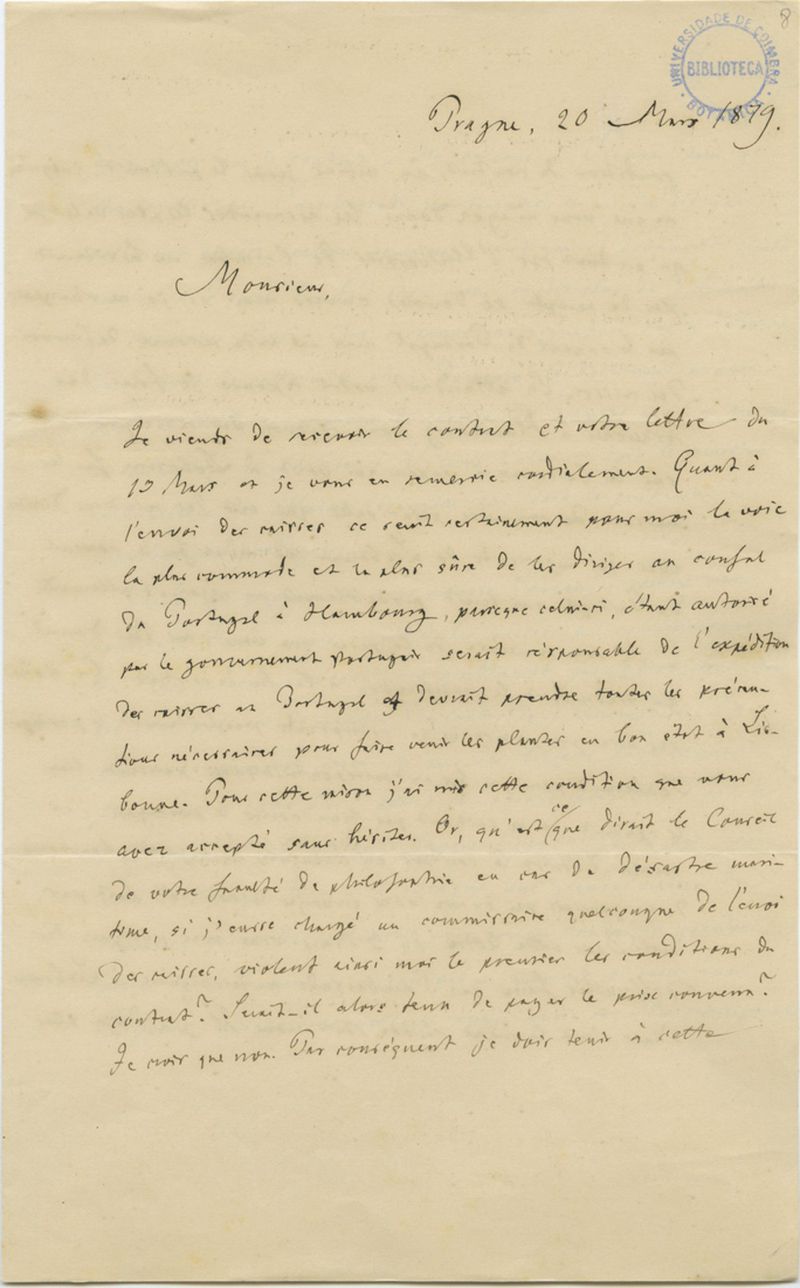 8
UNIVERSIDADE DE COIMBRA
BIBLIOTECA
Prague, 20 Mars 1879.
Monsieur,
Je viends de recevoir le contrat et votre lettre du
Mars et je vous en remercie cordialement. Quant à
l'envoi des caisses ce serait certainement pour moi la voie
la plus commode et la plus sûre de les diriger au consul
du Portugal à Hambourg, parceque celui-ci, étant autorisé
par le gouvernement portugais serait résponsable de l'expédition
des caisses en Portugal et devrait prendre toutes les précau-
tions nécessaires pour faire venir les plantes en bon état à Lis-
bonne. Pour cette raison j'ai mis cette condition que vous
avez accepté sans hésiter. Or, qu'est ce que dirait le Conseil
de votre faculté de philosophie en cas de désastre mari-
time, si j'eusse chargé un commissaire quelconque de l'envoi
des caisses, violent ainsi moi le premier les conditions du
contrat? Serait-il alors tenu de payer le prix convenu?
Je crois que non. Par conséquent je dois tenir à cette